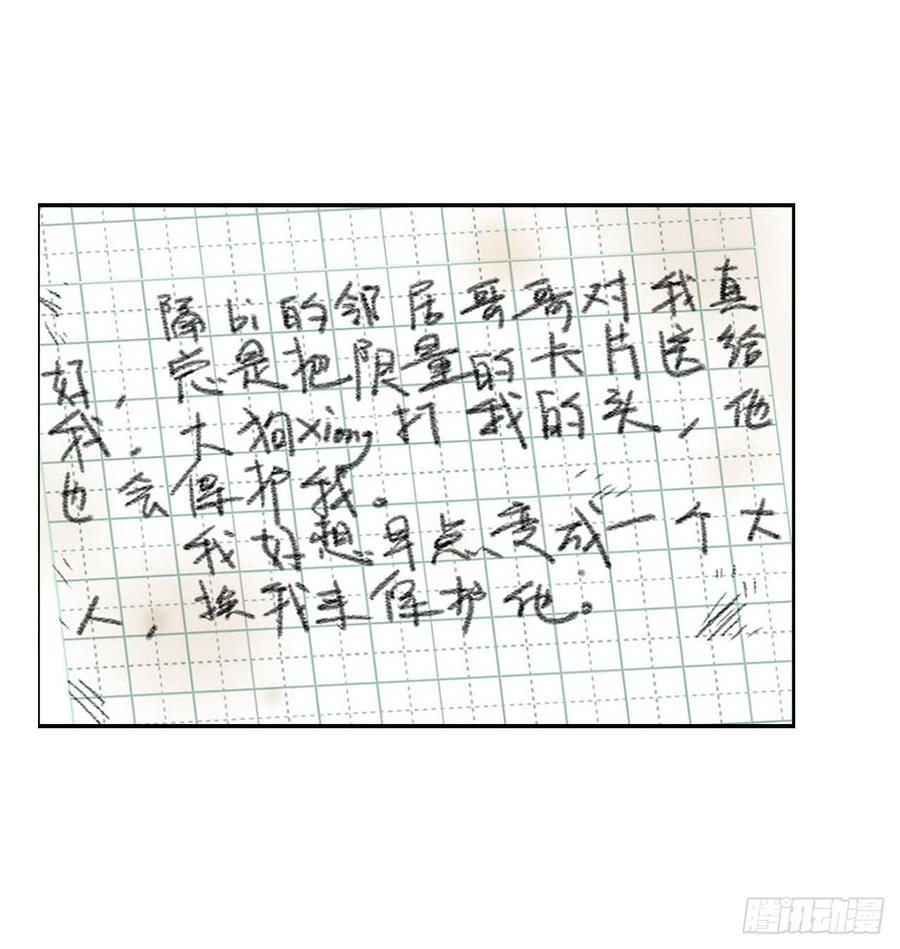 隔bi的邻居哥哥对我真
好，总是把限量的卡片送给
我。大狗xiong打我的头，他
也会保护我。
我好想早点变成一个大
人，换我来保护他。
腾讯动漫